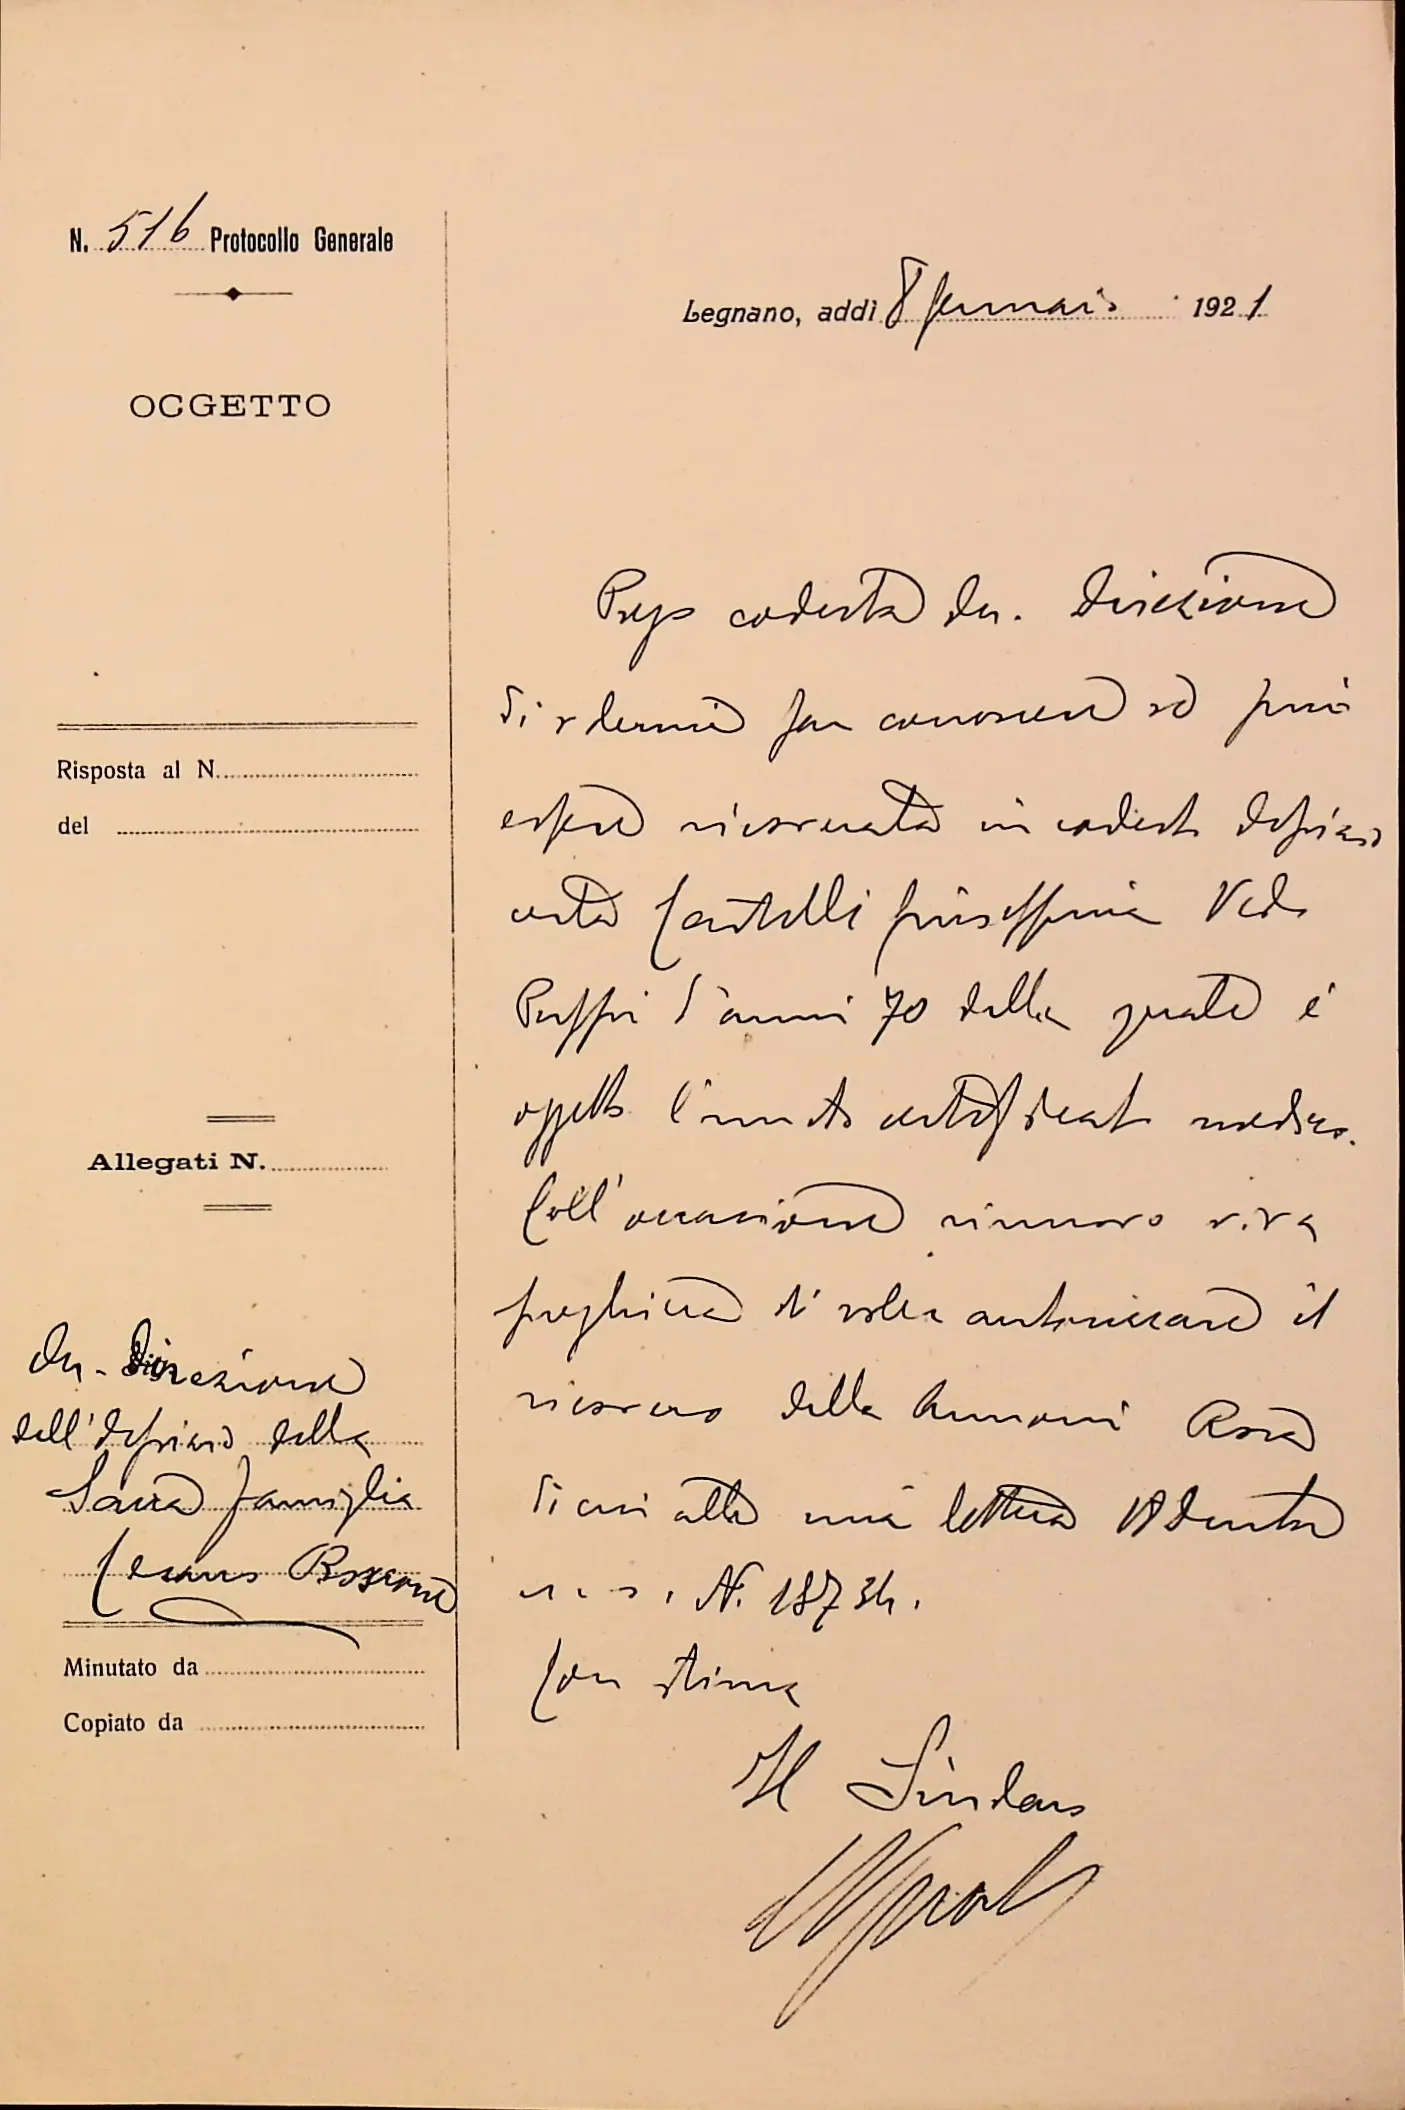 N. 516 Protocollo Generale
Legnano, addì 8 Gennaio 1921
OGGETTO
Prego codesta On. Direzione
di volermi far conoscere se può
essere ricoverata in codesto Ospizio
certa Castelli Giuseppina Ved.
d'anni 70 della quale è
oggetto l'unito certificato medico.
Coll'occasione rinnovo viva
preghiera di voler autorizzare il
ricovero della Annoni Rosa
di cui alla mia lettera
N. 18734.
Con stima
Il Sindaco
Risposta al N.
del
Allegati N.
On. Direzione
dell'Ospizio della
Sacra Famiglia
Cesano Boscone
Minutato da
Copiato da